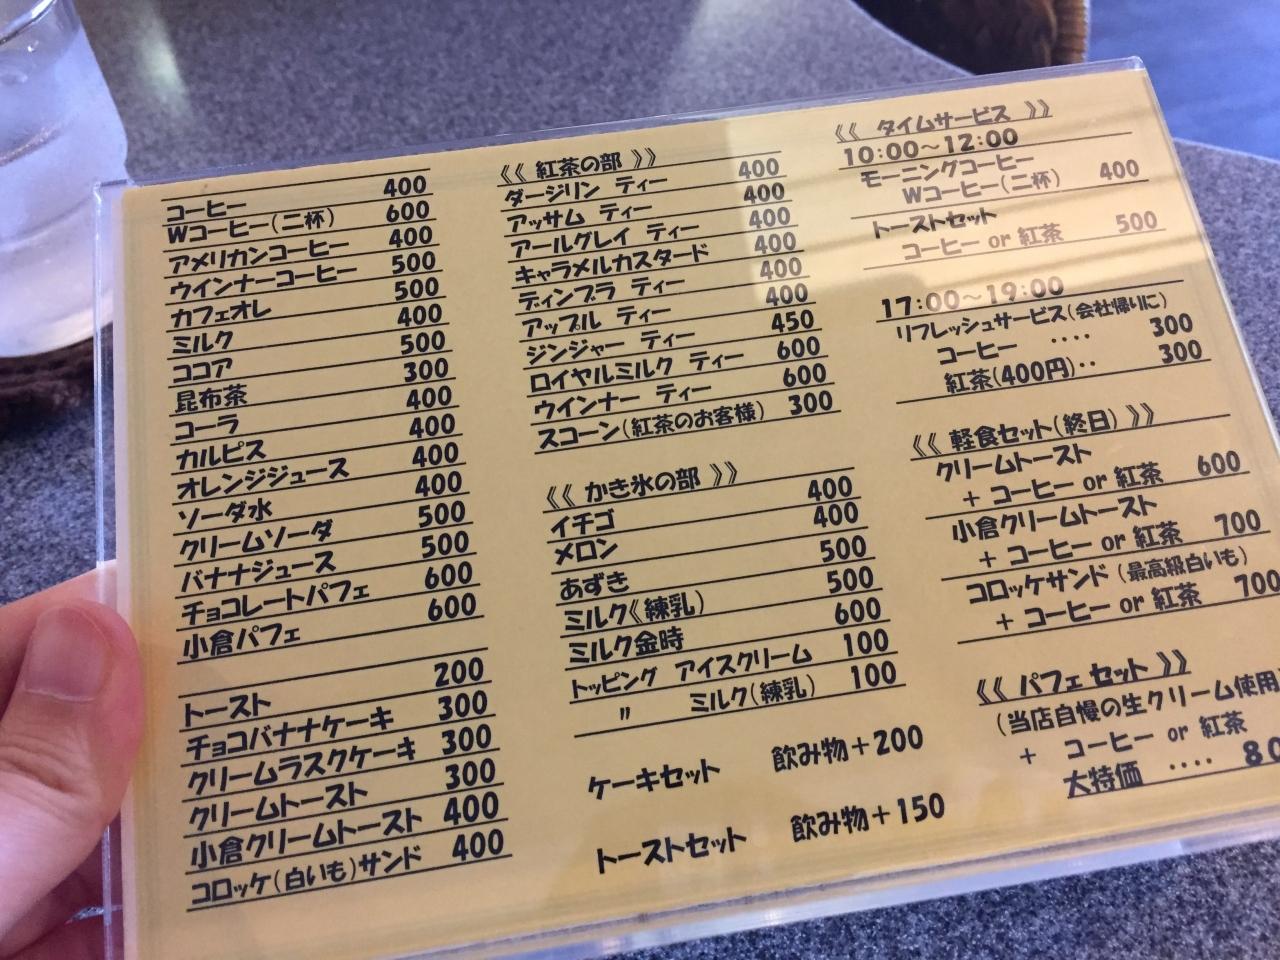 コーヒー 400
Wコーヒー(二杯) 600
アメリカンコーヒー 400
ウインナーコーヒー 500
カフェオレ 500
ミルク 400
ココア 500
昆布茶 300
コーラ 400
カルピス 400
オレンジジュース 400
ソーダ水 400
クリームソーダ 500
バナナジュース 500
チョコレートパフェ 600
小倉パフェ 600
トースト 200
チョコバナナケーキ 300
クリームラスクケーキ 300
クリームトースト 300
小倉クリームトースト 400
コロッケ(白いも)サンド 400
《《 紅茶の部 》》
ダージリン ティー 400
アッサム ティー 400
アールグレイ ティー 400
キャラメルカスタード 400
ディンブラ ティー 400
アップル ティー 400
ジンジャー ティー 450
ロイヤルミルク ティー 600
ウインナー ティー 600
スコーン(紅茶のお客様) 300
《《 かき氷の部 》》
イチゴ 400
メロン 400
あずき 500
ミルク(練乳) 500
ミルク金時 600
トッピング アイスクリーム 100
〃 ミルク(練乳) 100
ケーキセット 飲み物+200
トーストセット 飲み物+150
《《 タイムサービス 》》
10:00~12:00
モーニングコーヒー
Wコーヒー(二杯) 400
トーストセット
コーヒー or 紅茶 500
17:00~19:00
リフレッシュサービス(会社帰りに)
コーヒー ‥‥ 300
紅茶(400円)‥ 300
《《 軽食セット(終日) 》》
クリームトースト
+ コーヒー or 紅茶 600
小倉クリームトースト
+ コーヒー or 紅茶 700
コロッケサンド (最高級白いも)
+ コーヒー or 紅茶 700
《《 パフェ セット 》》
(当店自慢の生クリーム使用
+ コーヒー or 紅茶
大特価 ‥‥